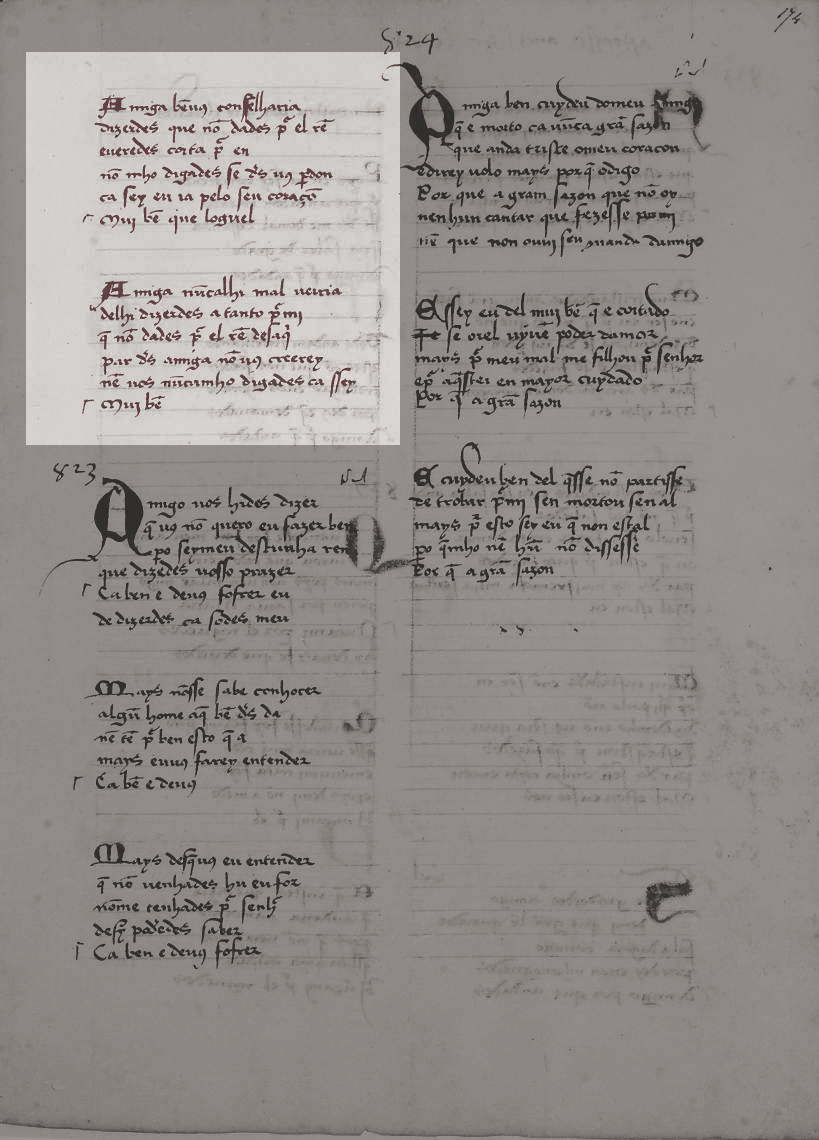 Amiga bẽuꝯ conſelharia
dizerdes que nõ dades p̃ el rẽ
eueredes coita p̃ en
nõ mho digades se d̃s uꝯ ꝑdon
ca sey eu ia pelo seu coraçõ
Mui bẽ que loguel
Amiga nũcalhi mal ueiria
delhi dizerdes a tanto p̃ mi
q̃ nõ dades p̃ el rẽ desaq̃
par d̃s amiga nõ uꝯ creerey
nẽ uos nũcamho digades ca ſſey
Mui bẽ
823
Amigo uos hides dizer
q̃ uꝯ nõ quero eu fazer ben
po seymeu destunha ren
que dizedes uosso prazer
Ca ben e deuꝯ sofrer eu
de dizerdes ca sodes meu
Mays nõsse sabe conhocer
algũ home aq̃ bẽ d̃s da
nẽ tẽ p̃ ben esto q̃ a
mays euuꝯ farey entender
Ca bẽ e deuꝯ
Mays desq̃uꝯ eu entender
q̃ nõ uenhades hu eu for
nõme tenhades p̃ senh̃
desy poderdes saber
Ca ben e deuꝯ sofrer
824
174
Amiga ben cuydeu domeu amigo
q̃ e morto ca nũca grã sazon
que anda triste omeu coraçon
edirey uolo mays por q̃ odigo
Por que a gram sazon que nõ oy
nen hun cantar que fezesse por mi
nẽ que non ouui seu mandu damigo
E ssey eu del mui bẽ q̃ e coitado
se oiel uyuẽ poder damor
mays p̃ meu mal me filhou p̃ senhor
ep̃ aq̃stei en mayor cuydado
Por q̃ a grã sazon
E cuydeu ben del q̃sse nõ partisse
de trobar p̃ mi sen mortou sen al
mays p̃ esto sey eu q̃ non estal
po q̃mho nẽ hũ nõ dissesse
Por q̃ a grã sazon